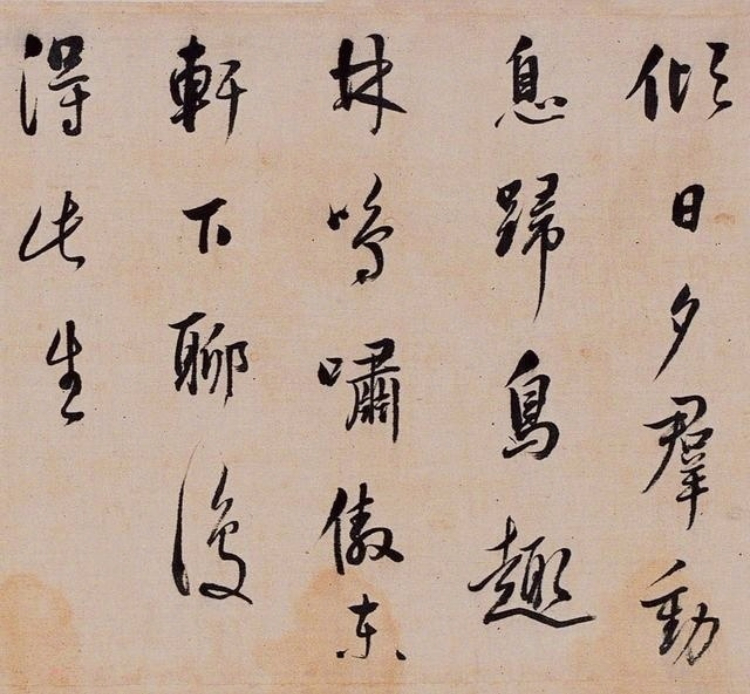 傾日夕羣動
息歸鳥趣
林鳴嘯傲東
軒下聊復
得此生